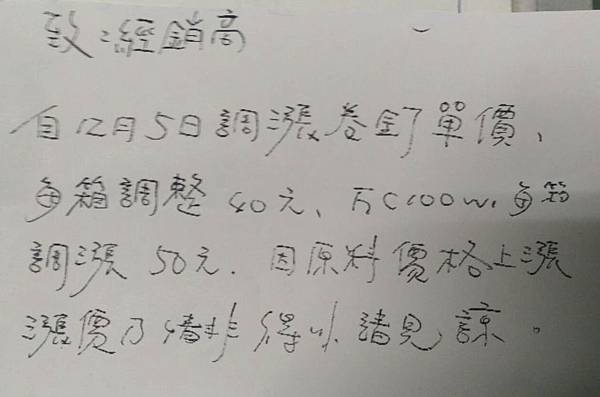 致：經銷高
自12月5日調漲卷釘單價、
每箱調整40元、万C100W，每箱
調漲50元．因原料價格上漲
漲價乃情非得以請見諒。